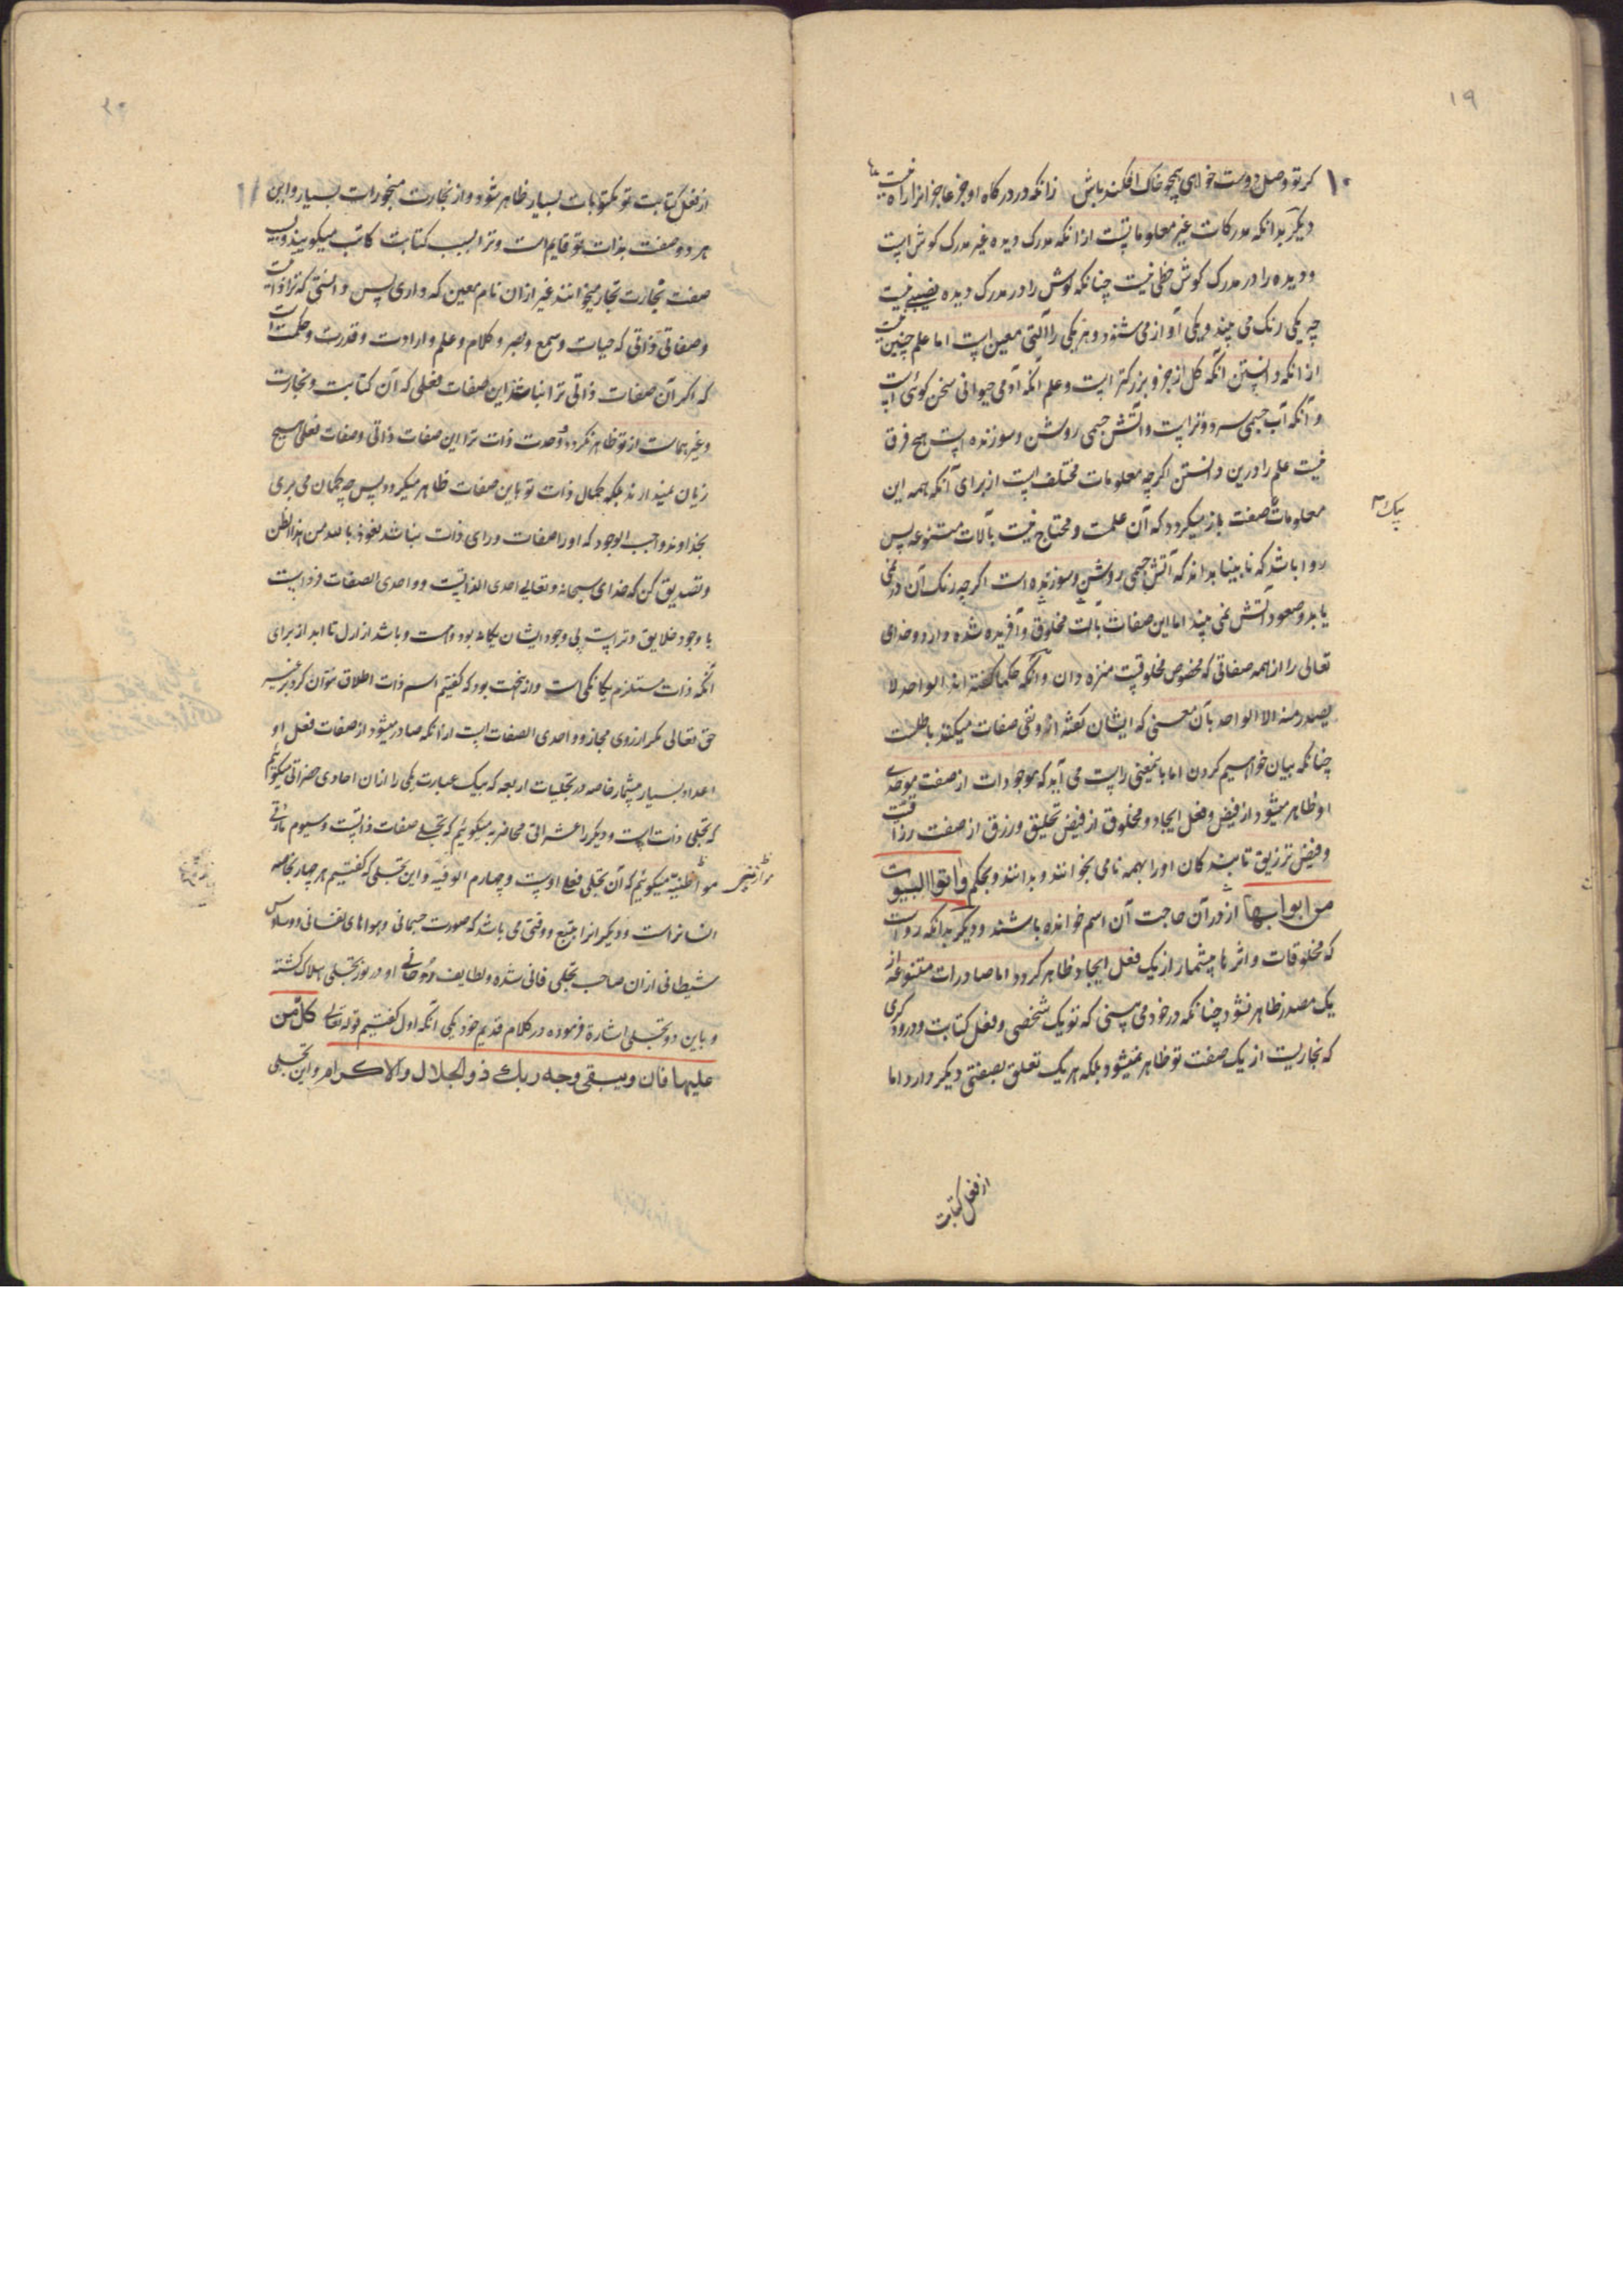 ۱۹
۱۰ کر تو وصل دوست خواهی همچو خاک افکنده باش زانکه در درکاه او جز عاجزانرا راه نیست
دیکر بدانکه مدرکات غیر معلوماتست ازانکه مدرک دیده غیر مدرک کوش است
و دیده را در مدرک کوش حظی نیست چنانکه کوش را در مدرک دیده نصیبی نیست
چه یکی رنک می بیند و یکی آواز می شنود و هر یکی را آلتی معین است اما علم چنین نیست
از انکه دانستن آنکه کل از جزو بزرکتر است و علم آنکه آدمی حیوانی سخن کوئی است
و آنکه آب جسمی سرد و تر است و آتش جسمی روشن و سوزنده است هیچ فرق
نیست علم را درین دانستن اکرچه معلومات مختلف است از برای آنکه همه این
معلومات بصفت باز میکردد که آن علمست و محتاج نیست بآلات متنوعه پس
روا باشد که نابینا بداند که آتش جسمی روشن و سوزنده است اکرچه رنک آن در نمی
یابد و صعود آتش نمی بیند اما این صفات بآلت مخلوق و آفریده شده دارد و خدای
تعالی را از همه صفاتی که مخصوص مخلوقیت منزه دان و آنکه حکما کفته اند الواحد لا
یصدر منه الا الواحد بآن معنی که ایشان کفته اند و نفی صفات میکنند باطلست
چنانکه بیان خواهیم کردن اما باینمعنی راست می آید که موجودات از صفت موجدی
او ظاهر میشود از فیض و فعل ایجاد و مخلوق از فیض تخلیق و رزق از صفت رزاقیت
و فیض ترزیق تا بندکان او را بهمه نامی بخوانند و بدانند و بحکم واتوا البیوت
من ابوابها از در آن حاجت آن اسم خوانده باشند و دیکر بدانکه رواست
که مخلوقات و اثرها بیشمار از یک فعل ایجاد ظاهر کردد اما صادرات متنوعه از
یک مصدر ظاهر نشود چنانکه در خود می بینی که تو یک شخصی و فعل کتابت و درودکری
که نجاریست از یک صفت تو ظاهر نمیشود بلکه هر یک تعلق بصفتی دیکر دارد اما
از فعل کتابت
۲۰
۱۱
از فعل کتابت تو مکتوبات بسیار ظاهر شود و از نجارت منجورات بسیار و این
هر دو صفت بذات تو قایم است و ترا بسبب کتابت کاتب میکویند و بسبب
صفت نجارت نجار میخوانند غیر ازان نام معین که داری پس دانستی که ترا ذاتیست
و صفاتی ذاتی که حیات و سمع و بصر و کلام و علم و ارادت و قدرت و حکمت است
که اکر آن صفات ذاتی ترا نباشد این صفات فعلی که آن کتابت و نجارت
و غیرهماست از تو ظاهر نکردد و وحدت ذات ترا این صفات ذاتی و صفات فعلی هیچ
زیان نمیدارند بلکه کمال ذات تو باین صفات ظاهر میکردد پس چه کمان می بری
بخداوند واجب الوجود که او را صفات ورای ذات نباشد نعوذ بالله من هذا الظن
و تصدیق کن که خدای سبحانه و تعالی احدی الذاتیست و واحدی الصفات فردایست
با وجود خلایق و تراست بی وجود ایشان یکانه بود و هست و باشد از ازل تا ابد از برای
آنکه ذات مستلزم یکانکی است و ازینجهت بود که کفتیم اسم ذات اطلاق نتوان کرد بر غیر
حق تعالی مکر از روی مجاز و واحدی الصفات است از انکه صادر میشود از صفات فعل او
اعداد بسیار بیشمار خاصه در تجلیات اربعه که بیک عبارت یکی را ازان احادی حضراتی میکوئیم
که تجلی ذات است و دیکر را عشراتی محاضریه میکوئیم که تجلی صفات ذاتیست و سیوم مآتی
مواطنیه میکوئیم که آن تجلی فعلی اوست و چهارم الوفیه و این تجلی که کفتیم هر چهار بخاصه
انسانراست و دیکرانرا بتبع و وقتی می باشد که صورت جسمانی و هواهای نفسانی و وساوس
شیطانی ازان صاحب تجلی فانی شده و لطایف روحانی او در نور تجلی هلاک کشته
و باین دو تجلی اشارة فرموده در کلام قدیم خود یکی آنکه اول کفتیم قوله تعالی کل من
علیها فان ویبقی وجه ربك ذو الجلال والاکرام و این تجلی